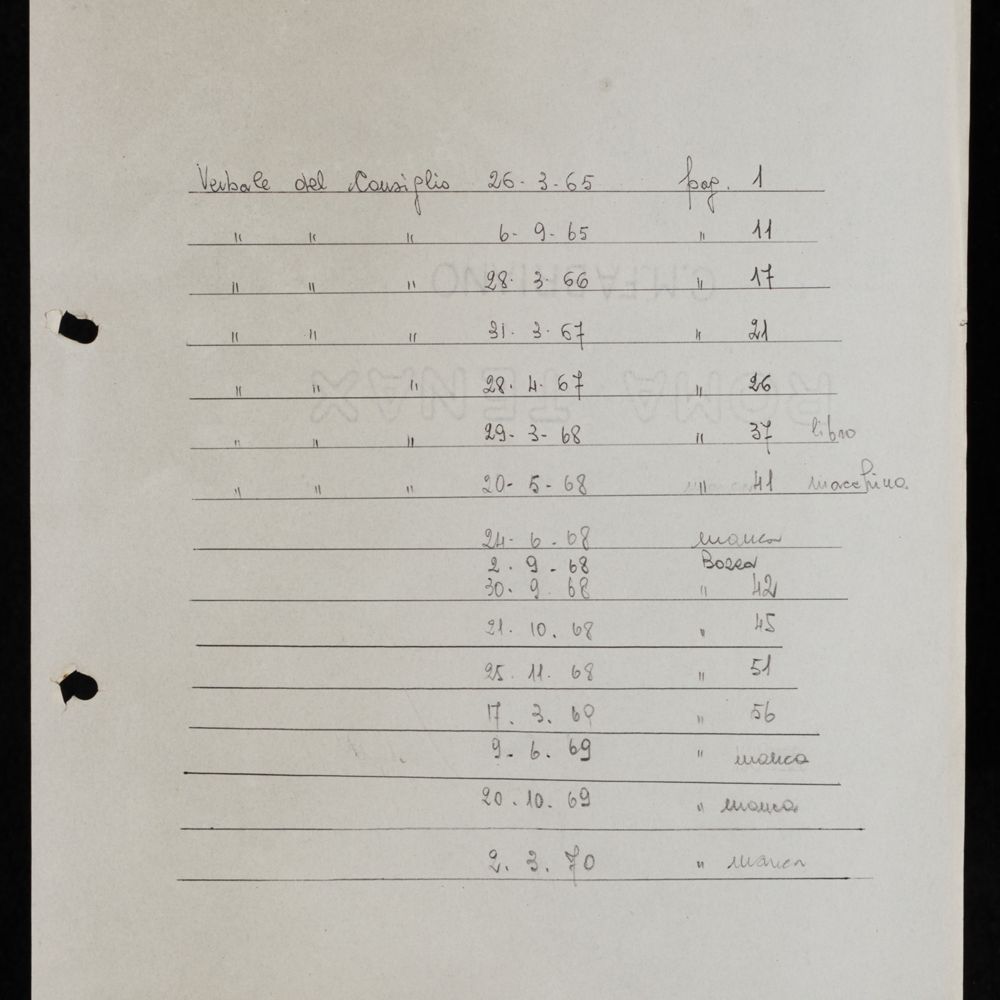 Verbale del Consiglio 26-3-65 pag. 1
" " " 6-9-65 " 11
" " " 28-3-66 " 17
" " " 31.3.67 " 21
" " " 28.4.67 " 26
" " " 29-3-68 " 37 libro
" " " 20-5-68 " 41 macchina
24-6-68 manca
2.9-68 Bozza
30.9.68 " 42
21.10.68 " 45
25.11.68 " 51
17.3.69 " 56
9-6.69 " manca
20.10.69 " manca
2.3.70 " manca